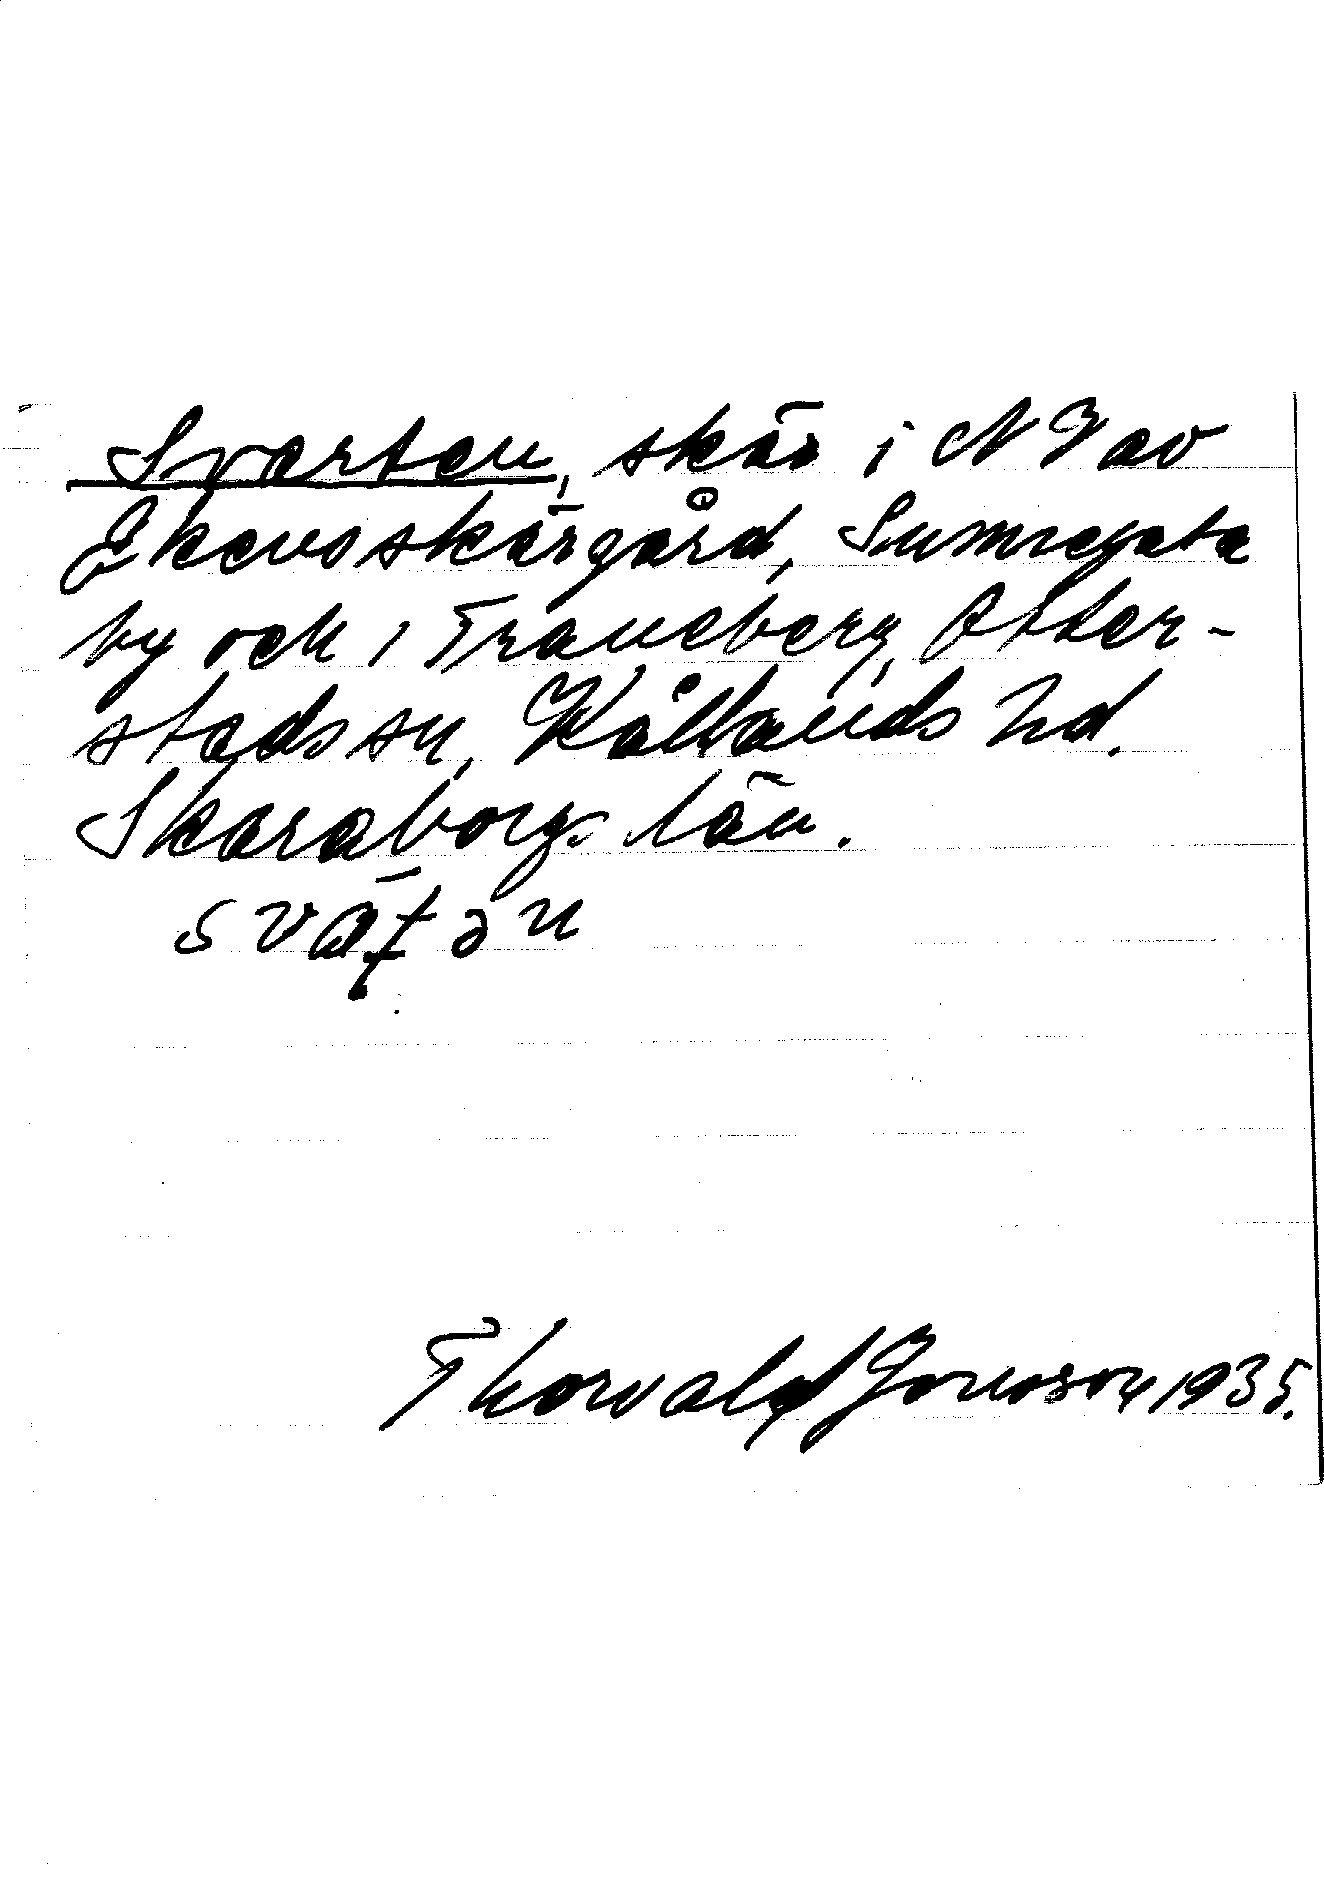 Svarten, skär i NV av
Ekens skärgård, Sunnegata
by och i Traneberg, Otter-
stads sn, Kållands hd.
Skaraborgs län.
svat̠ən
Thorvald Jonsson 1935.